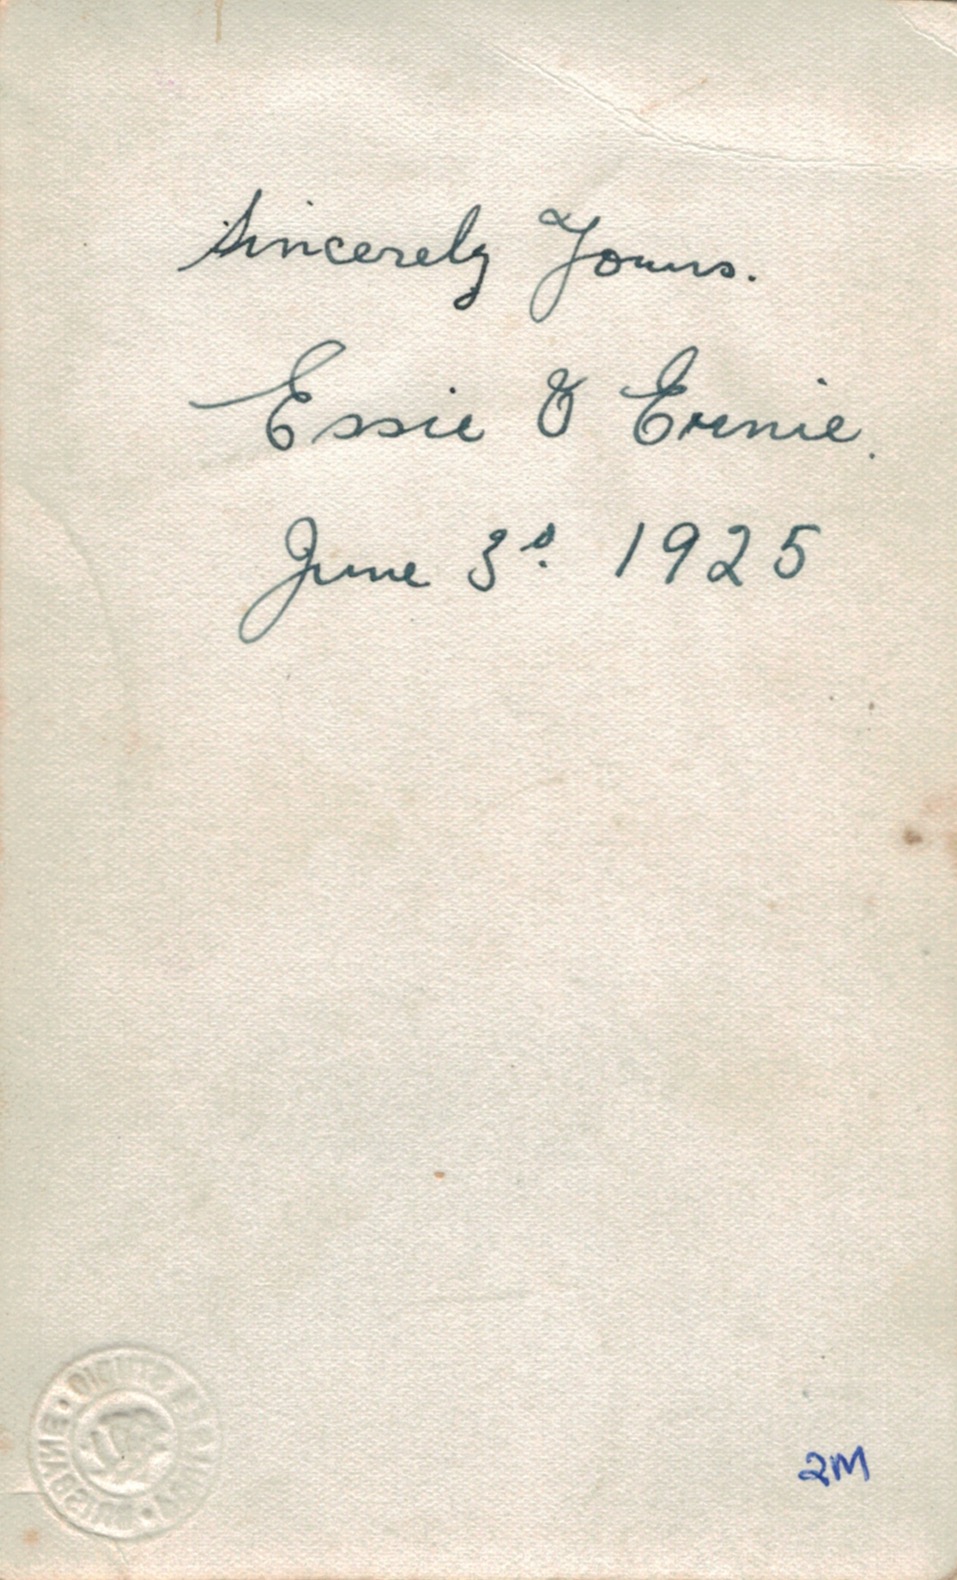 Sincerely Yours.
Essie & Ernie.
June 3d. 1925
2M